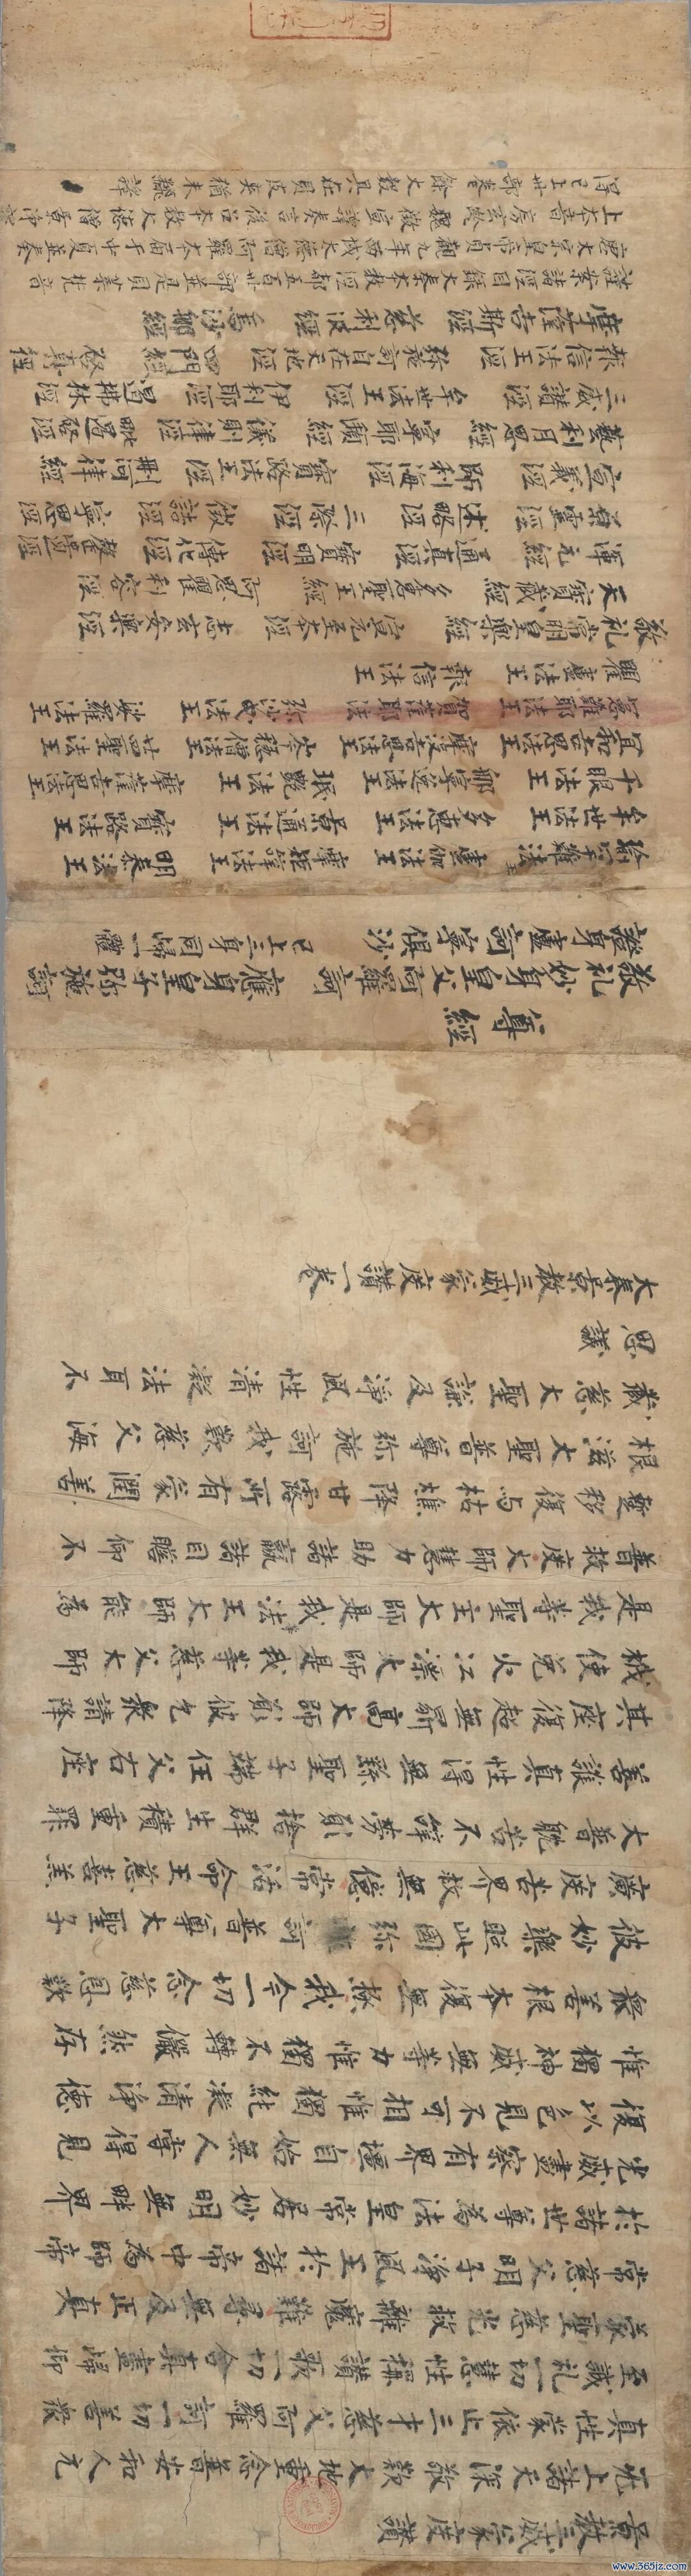 景教三威蒙度讚
无上諸天深敬歎 大地重念普安和 人元
真性蒙依止 三才慈父阿羅訶 一切善眾
至誠礼 一切慧性稱讚歌 一切含真盡歸仰
蒙聖慈光救離魔 難尋無及正真
常 慈父明子淨風王 於諸帝中為師帝
於諸世尊為法皇 常居妙明無畔界
光威盡察有界疆 自始無人嘗得見
復以色見不可相 惟獨純凝清淨德
惟獨神威無等力 惟獨不轉儼然存
眾善根本復無極 我今一切念慈恩 歎
彼妙樂照此國 弥施訶普尊大聖子
廣度苦界救無億 常活命王慈喜羔
大普躭苦不辞勞 願捨群生積重罪
善護真性得無繇 聖子端任父右座
其座復超無鼎高 大師願彼乞眾請 降
栰使免火江漂 大師是我等慈父 大師
是我等聖主 大師是我法王 大師能為
普救度 大師慧力助諸羸 諸目瞻仰不
暫移 復与枯燋降甘露 所有蒙潤善
根滋 大聖普尊弥施訶 我歎慈父海
藏慈 大聖謙及淨風性 清凝法耳不
思議
大秦景教三威蒙度讚一卷
尊經
敬礼 妙身皇父阿羅訶 應身皇子弥施訶
證身盧訶寧俱沙 已上三身同歸一體
瑜罕難法王 盧伽法王 摩矩辞法王 明泰法王
牟世法王 多惠法王 景通法王 寶路法王
千眼法王 那寧逸法王 珉艷法王 摩薩吉思法王
宜和吉思法王 摩沒吉思法王 岑穩僧法王 廿四聖法王
憲難耶法王 賀薩耶法王 弥沙曳法王 娑羅法王
瞿盧法王 報信法王
敬礼 常明皇樂經 宣元至本經 志玄安樂經
天寶藏經 多惠聖王經 阿思瞿利容經
渾元經 通真經 寶明經 傳化經 罄遺經
原靈經 述略經 三際經 徵詰經 寧思經
宣義經 師利海經 寶路法王經 刪河律經
藝利月思經 寧耶頲經 儀則律經 毗遏啟經
三威讚經 牟世法王經 伊利耶經 遏拂林經
報信法王經 弥施訶自在天地經 四門經 啟真經
摩薩吉斯經 慈利波經 烏沙那經
謹案諸經目錄大秦本教經都五百卅部並是貝葉梵音
唐太宗皇帝貞觀九年西域大德僧阿羅本屆于中夏並奏
上本音房玄齡魏徵宣譯奏言後召本教大德僧景淨譯
得已上卅部卷餘大數具在貝皮夾猶未翻譯
www.365jz.com